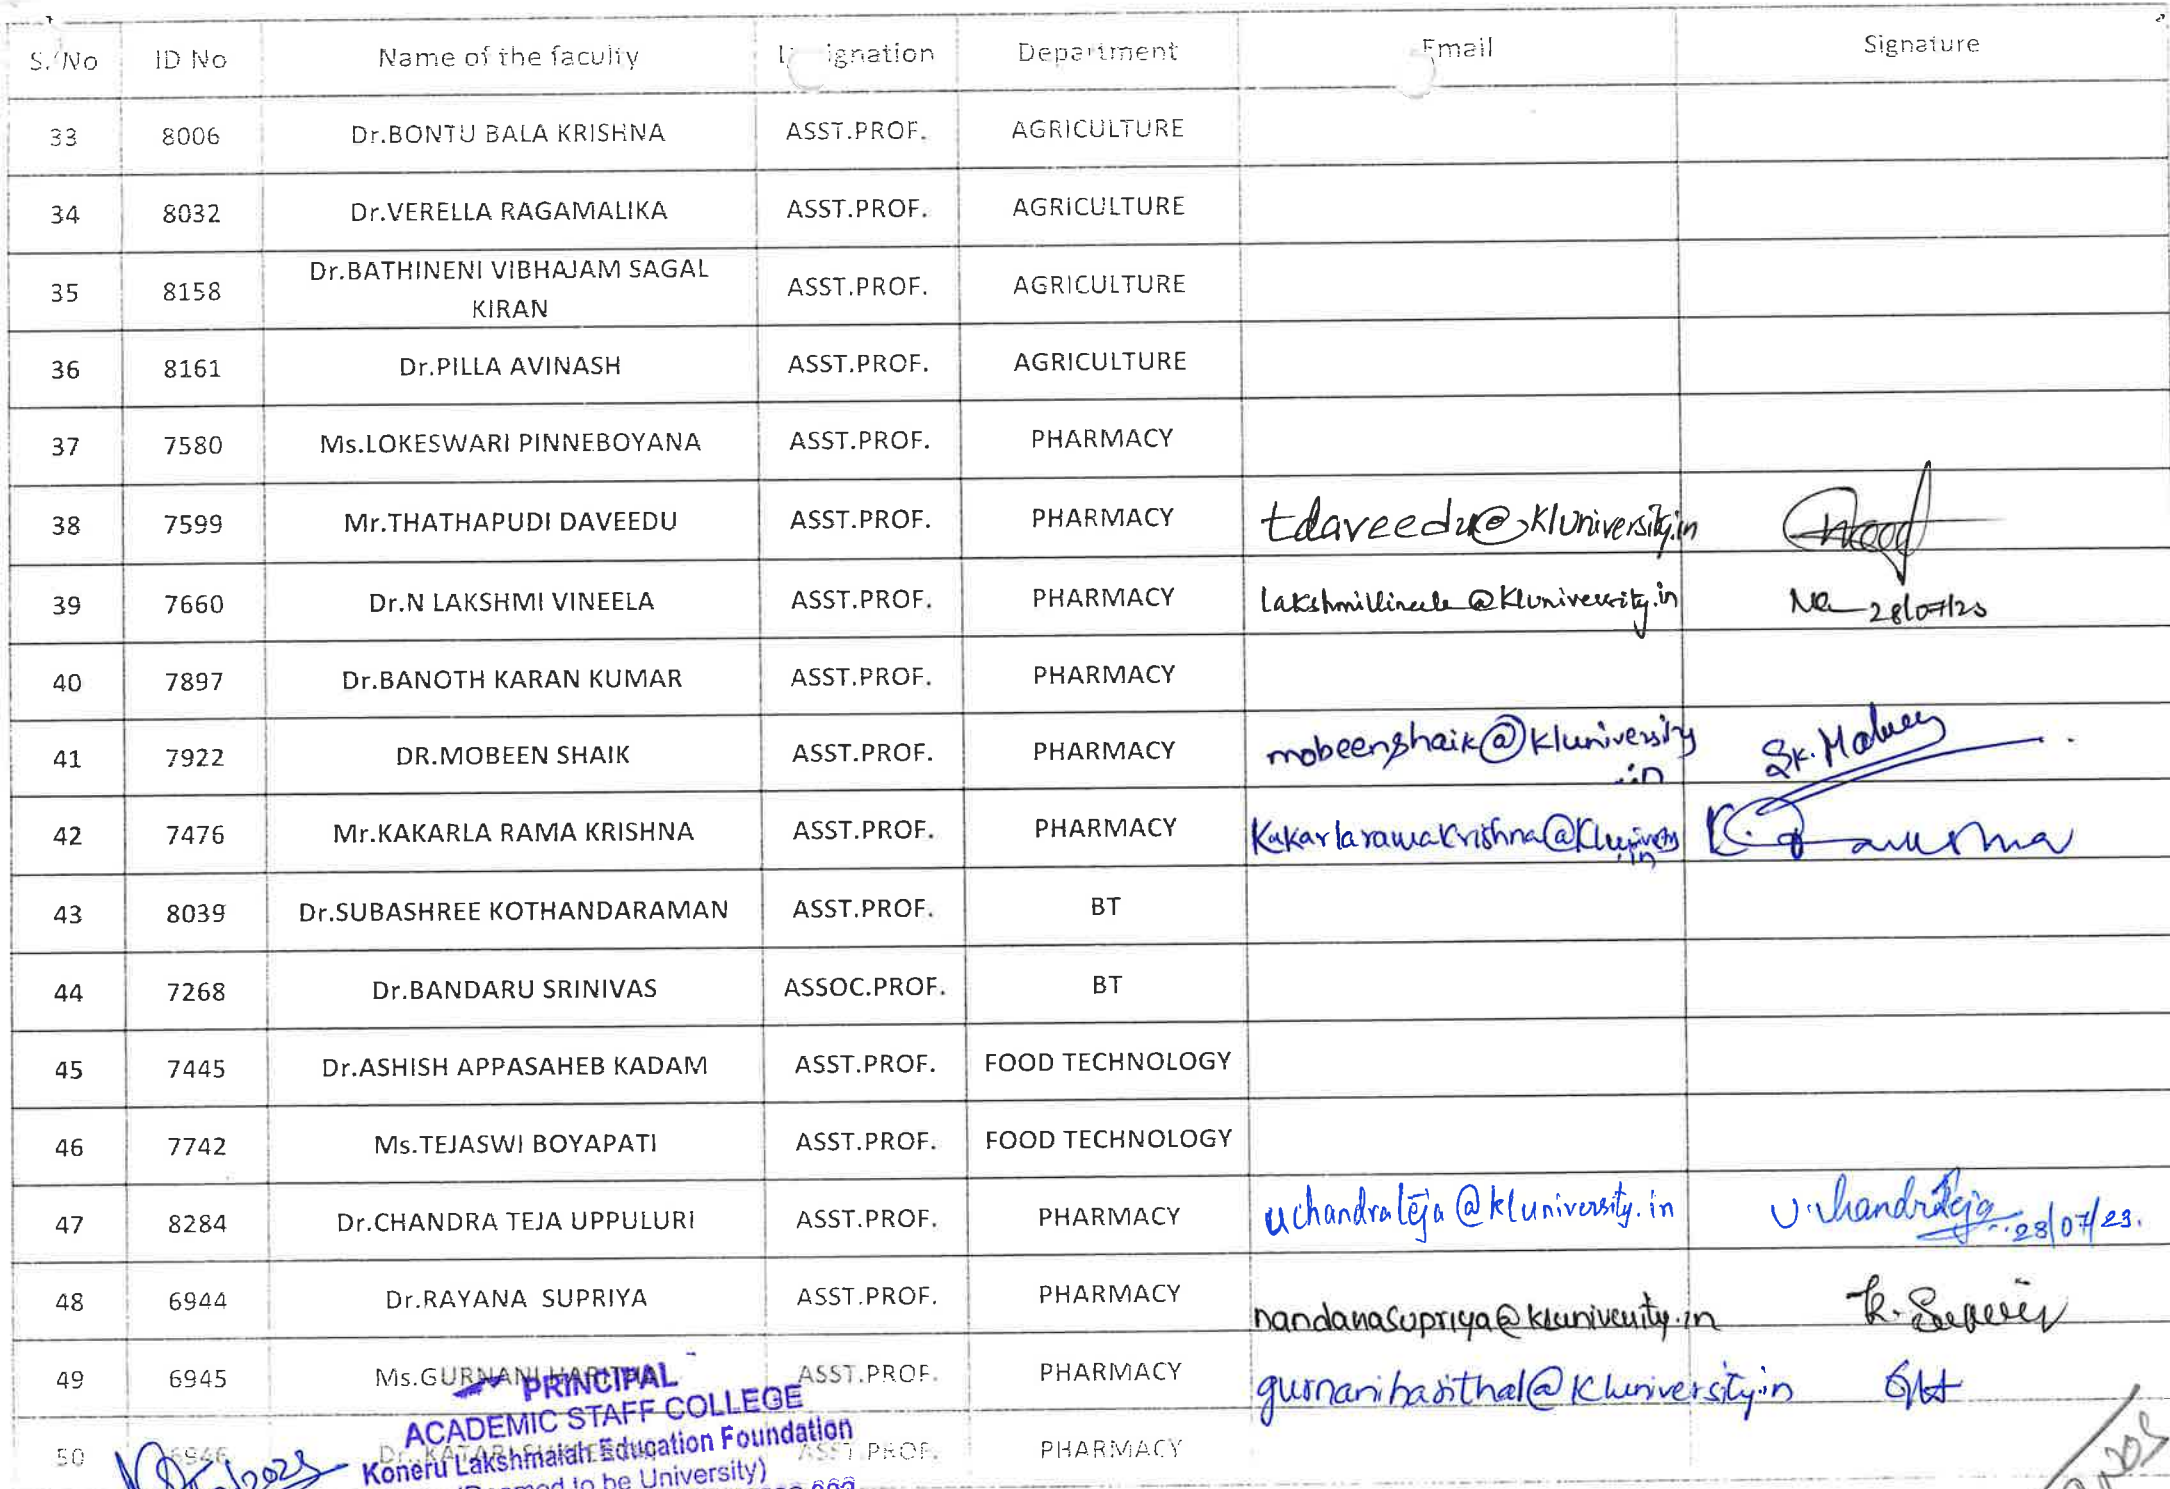 S.No ID No Name of the faculty Department Email Signature
33 8006 Dr.BONTU BALA KRISHNA ASST.PROF. AGRICULTURE
34 8032 Dr.VERELLA RAGAMALIKA ASST.PROF. AGRICULTURE
35 8158 Dr.BATHINENI VIBHAJAM SAGAL ASST.PROF. AGRICULTURE
KIRAN
36 8161 Dr.PILLA AVINASH ASST.PROF. AGRICULTURE
37 7580 Ms.LOKESWARI PINNEBOYANA ASST.PROF. PHARMACY
38 7599 Mr.THATHAPUDI DAVEEDU ASST.PROF. PHARMACY tdaveedu@kluniversity.in
39 7660 Dr.N LAKSHMI VINEELA ASST.PROF. PHARMACY lakshmivineela@kluniversity.in 28/07/23
40 7897 Dr.BANOTH KARAN KUMAR ASST.PROF. PHARMACY
41 7922 DR.MOBEEN SHAIK ASST.PROF. PHARMACY mobeenshaik@kluniversity
.in
42 7476 Mr.KAKARLA RAMA KRISHNA ASST.PROF. PHARMACY
.in
43 8039 Dr.SUBASHREE KOTHANDARAMAN ASST.PROF. BT
44 7268 Dr.BANDARU SRINIVAS ASSOC.PROF. BT
45 7445 Dr.ASHISH APPASAHEB KADAM ASST.PROF. FOOD TECHNOLOGY
46 7742 Ms.TEJASWI BOYAPATI ASST.PROF. FOOD TECHNOLOGY
47 8284 Dr.CHANDRA TEJA UPPULURI ASST.PROF. PHARMACY uchandrateja@kluniversity.in U.ChandraTeja 28/07/23.
48 6944 Dr.RAYANA SUPRIYA ASST.PROF. PHARMACY nandanasupriya@kluniversity.in
49 6945 Ms.GURNANI ASST.PROF. PHARMACY
50 6946 ASST.PROF. PHARMACY
PRINCIPAL
ACADEMIC STAFF COLLEGE
Koneru Lakshmaiah Education Foundation
(Deemed to be University)